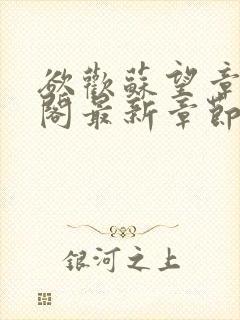 欲歡蘇望章
閣最新章節
銀河之上